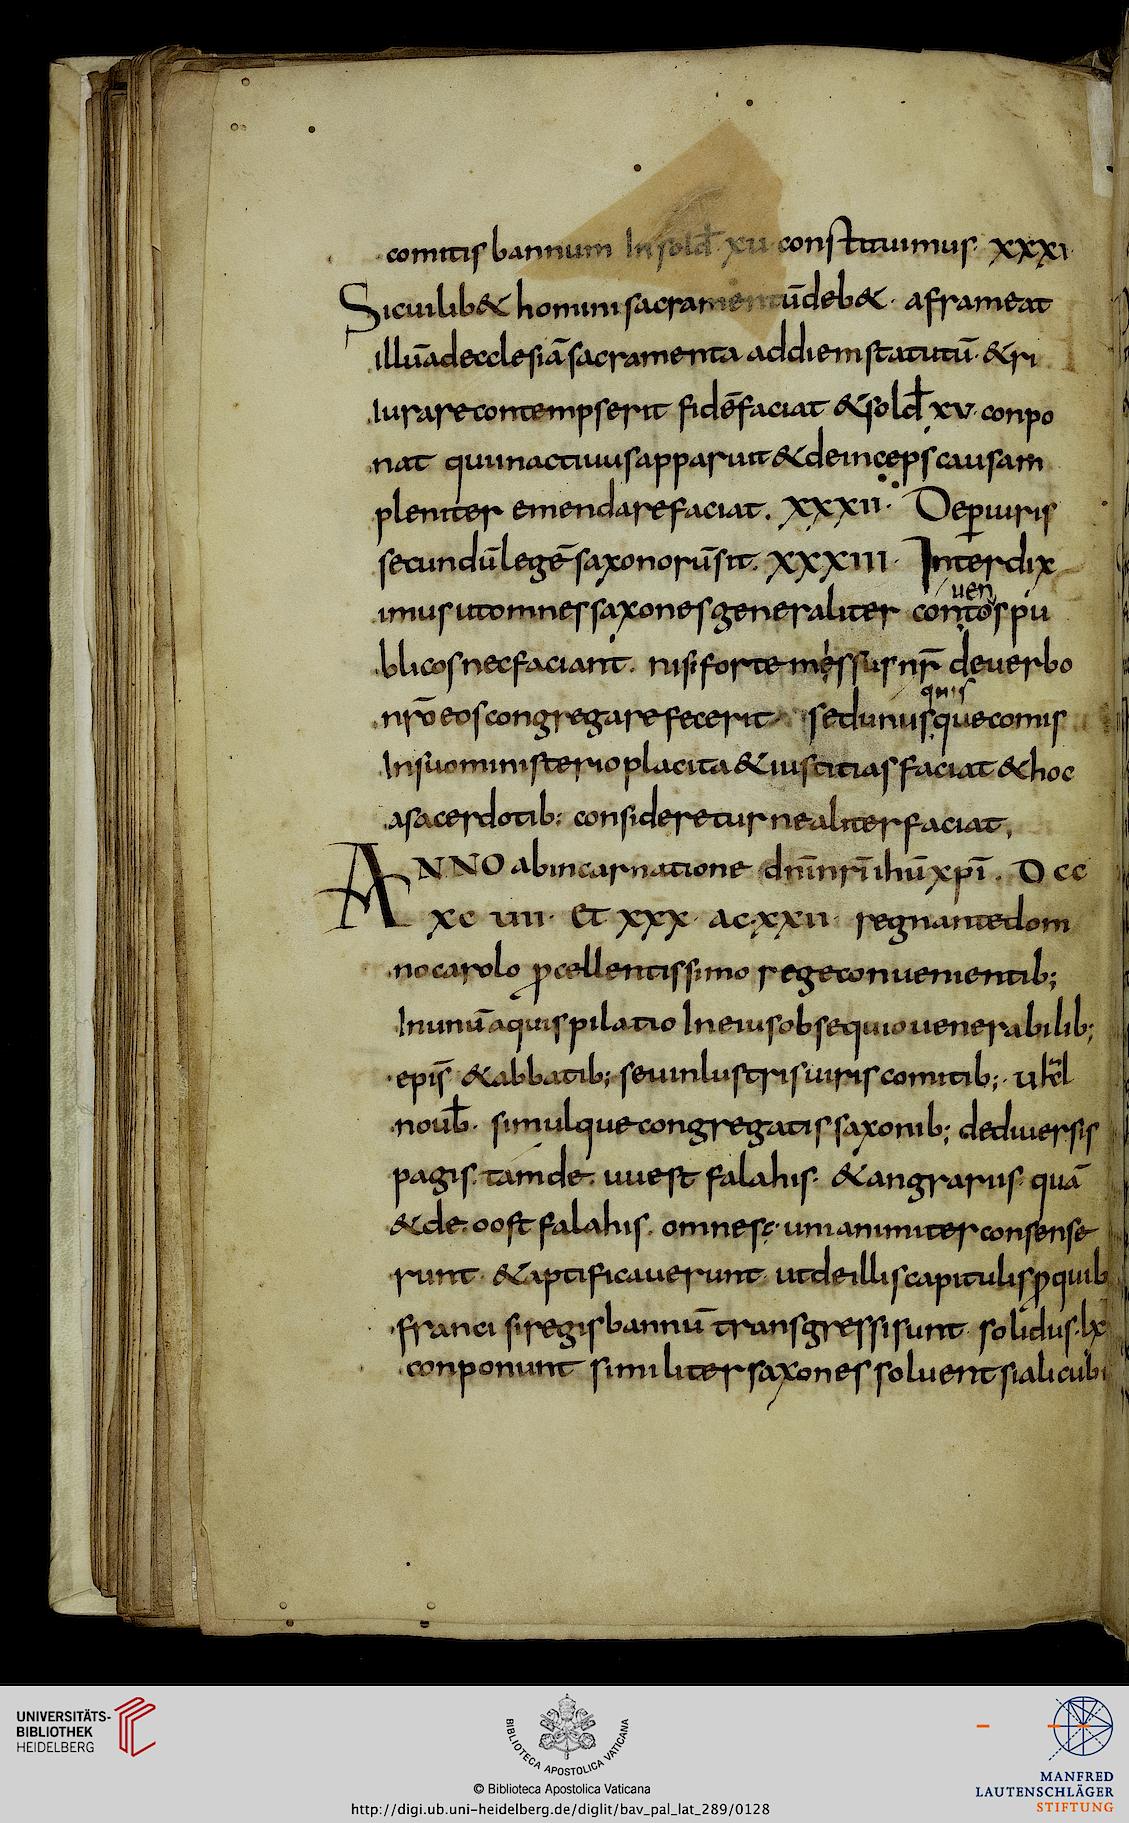 comitis bannum In sold̄ xu constituimus. xxxi
Sicuilib& homini sacramentūdeb&. aframeat
illūadecclesiāsacramenta addiemstatutū. &si
Iurarecontempserit fidēfaciat &sold̄ xv. conpo
nat quiinactiuusapparuit &deincepscausam
pleniter emendarefaciat. xxxii. Deꝑiuris
secundūlegēsaxonorūsit. xxxiii. Interdix
uen
imusutomnessaxonesgeneraliter contospu
blicosnecfaciant. nisiforte messusnr̄ deuerbo
quis
nr̄oeoscongregarefecerit sedunusquecomis
Insuoministerioplacita&iustitiasfaciat &hoc
asacerdotib: consideretur nealiterfaciat,
ANNO abincarnatione dn̄inr̄iihūxp̄i. D CC
XC uiii. Et xxx. ac.xxii. regnantedom
nocarolo p̄cellentissimo rege conuenientib;
Inunūaquispilatio Ineiusobsequiouenerabilib;
epis̄ &abbatib; seuinlustrisuirisc omitib;. u kl̄
nouƀ. simulquecongregatissaxonib; dediuersis
pagis. tamde. uuest falahis. &angrariis. quā
&de. oost falahis. omnesę. unianimiter consense
runt. &aptificauerunt. utdeilliscapitulisꝓquib
franci siregisbannū transgressisunt. solidus.lx
conponunt similitersaxones soluent sialicubi
UNIVERSITÄTS-
BIBLIOTHEK
HEIDELBERG
BIBLIOTECA APOSTOLICA VATICANA
© Biblioteca Apostolica Vaticana
http://digi.ub.uni-heidelberg.de/diglit/bav_pal_lat_289/0128
MANFRED
LAUTENSCHLÄGER
STIFTUNG